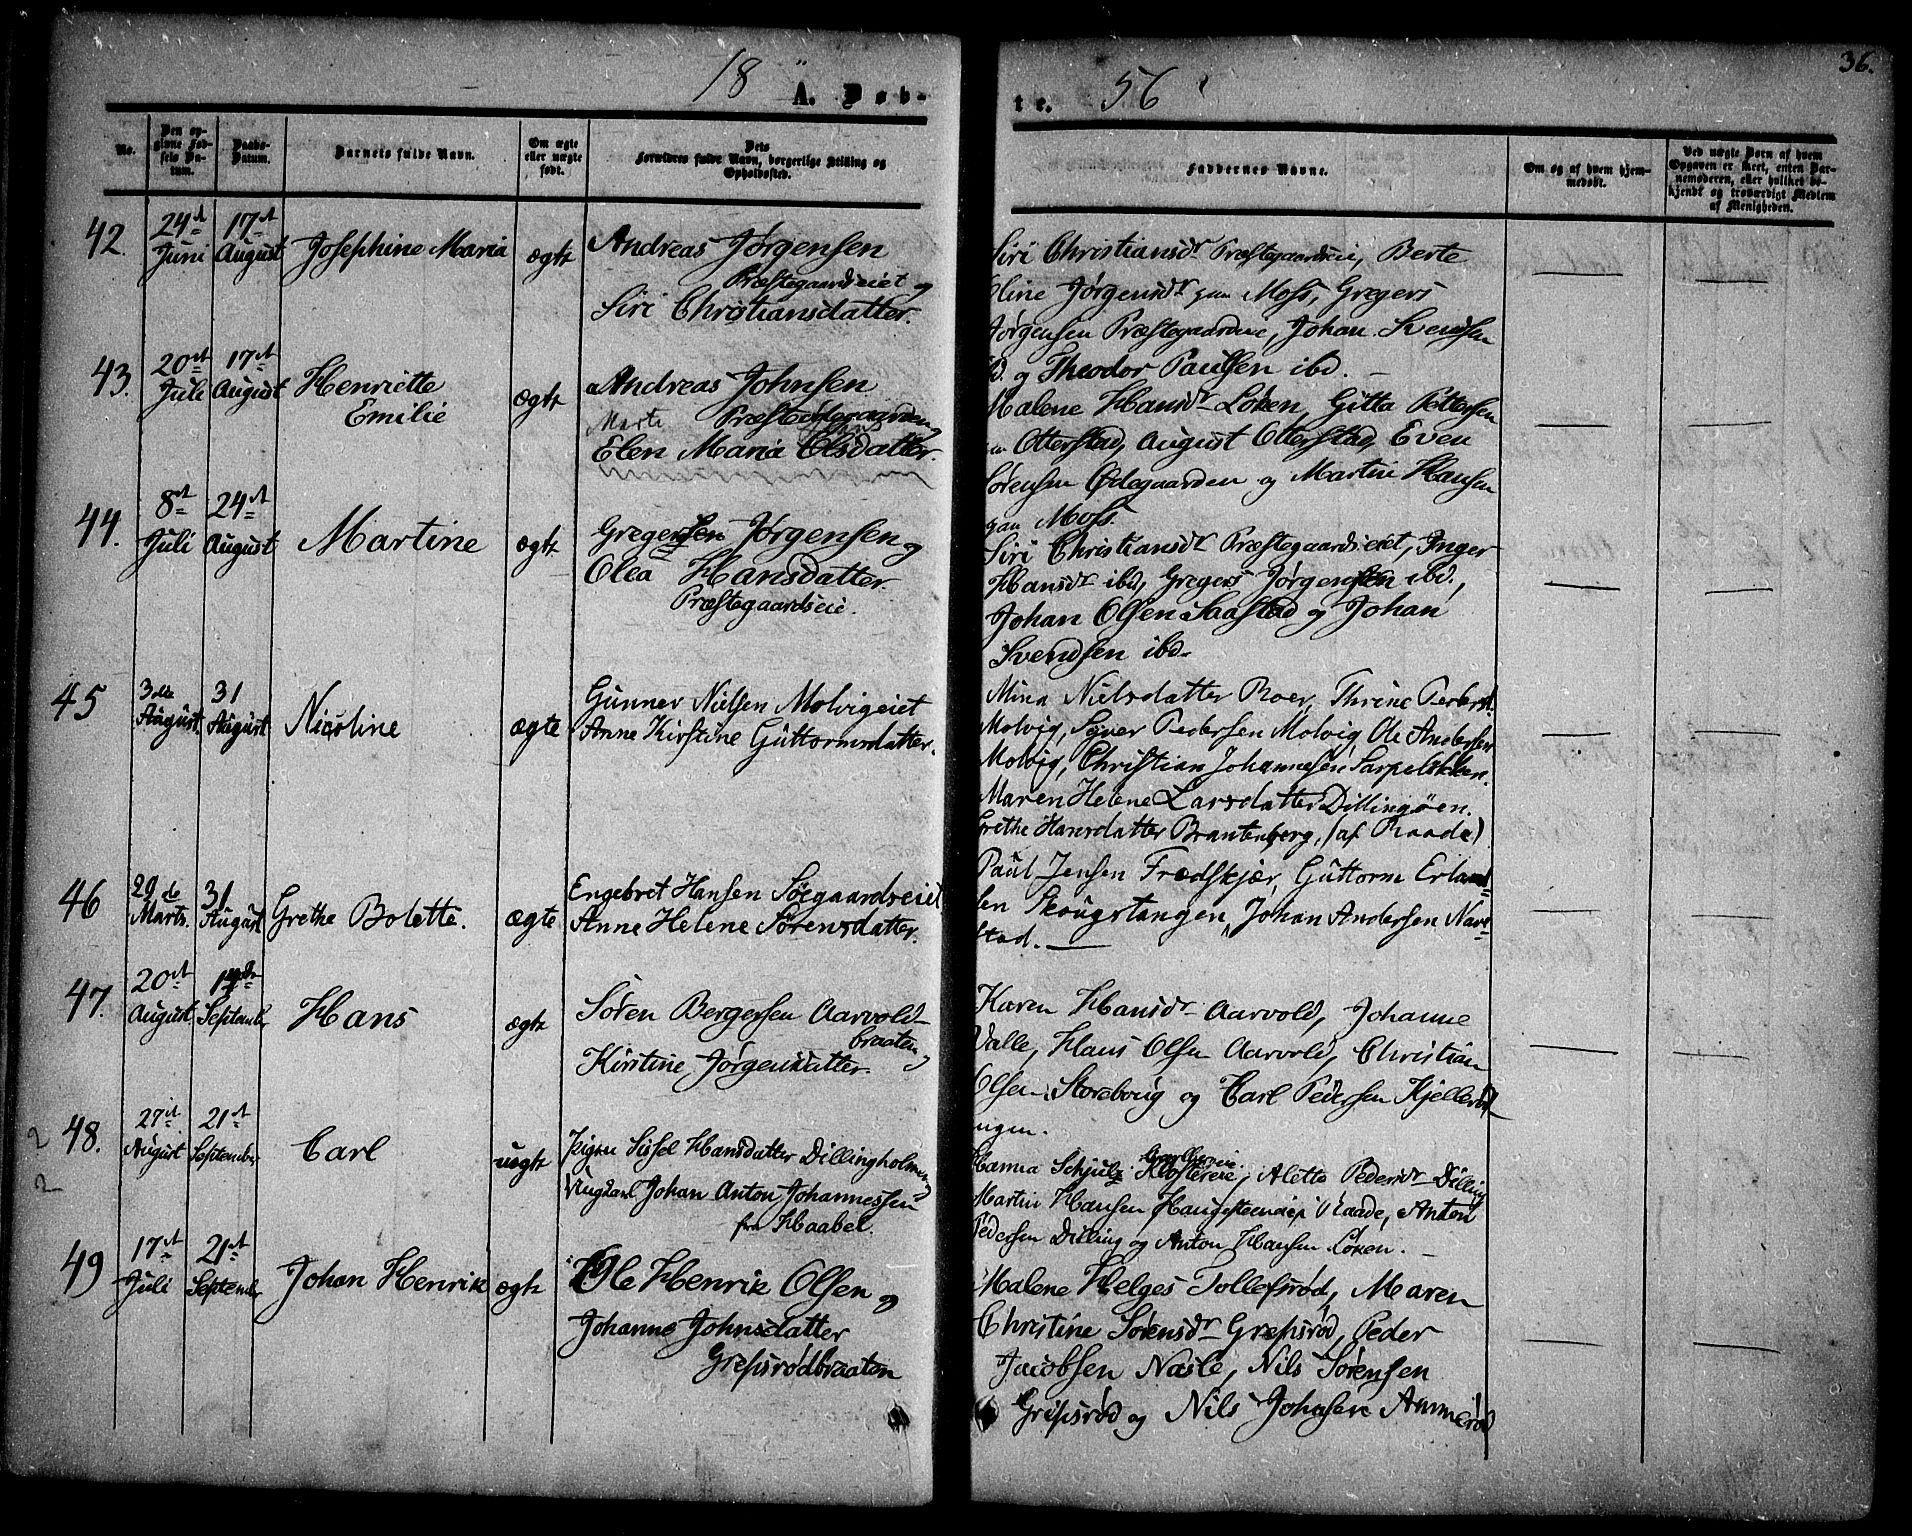 18 A. Døb-
te. 56
36.
No.
Den opgivne Fødsels Datum.
Daabs-Datum.
Barnets fulde Navn.
Om ægte eller uægte født.
Dets Forældres fulde Navn, borgerlige Stilling og Opholdssted.
Faddernes Navne.
Om og af hvem hjemmedøbt.
Ved uægte Børn af hvem Opgaven er skeet, enten Barnemoderen, eller hvilket bekjendt og troværdigt Medlem af Menigheden.
42. 24d Juni 17d August Josephine Maria ægte
Andreas Jørgensen
Præstegaardseiet og
Siri Christiansdatter.
Siri Christiansdr Præstegaardseie, Berte
Oline Jørgensdr paa Moss, Gregers
Jørgensen Præstegaardseie, Johan Svendsen
ibd. og Theodor Paulsen ibd. —
43. 20d Juli 17d August Henriette
Emilie ægte
Andreas Johnsen
Præsteødegaarden og
Marte
Elen Maria Olsdatter.
Malene Hansdr Løken, Gitta Pettersen
Otterstad, August Otterstad, Even
Sørensen Ødegaarden og Martin Hansen
paa Moss.
44. 8d Juli 24d August Martine ægte
Gregersen Jørgensen og
Olea Hansdatter
Præstegaardseie.
Siri Christiansdr Præstegaardseiet, Inger
Hansdr ibd, Gregers Jørgensen ibd.,
Johan Olsen Saastad og Johan
Svendsen ibd.
45 3die August 31 August Nicoline ægte
Gunner Nielsen Molvigeiet
Anne Kirstine Guttormsdatter.
Mina Nielsdatter Roer, Thrine Pedersd.
Molvig, Syver Pedersen Molvig Ole Andersen
Molvig, Christian Johannesen Sarpeløkken.
46 29de Marts. 31 August Grethe Bolette. ægte
Engebret Hansen Søegaardseiet
Anne Helene Sørensdatter.
Maren Helene Larsdatter Dillingøen.
Grethe Hansdatter Brantenberg, (af Raade)
Paul Jensen Fredskjær, Guttorm Erland-
sen Skougstangen, Johan Andersen Nave-
stad. —
47. 20d August September Hans ægte
Søren Bergersen Aarvold-
braaten og
Kirstine Jørgensdatter.
Karen Hansdr Aarvold, Johanne
Valle, Hans Olsen Aarvold, Christian
Olsen Storeborg og Carl Pedersen Kjellerød-
ungen.
48. 27d August 21d September Carl uægte
Pigen Sissel Hansdatter Dillingholmen og
Ungkarl Johan Anton Johannessen
fra Haabel.
Hanna Schjulz Klostereie, Alette Pedersdr Dilling
Martin Hansen Haugesteneie i Raade, Anton
Pedersen Dilling og Anton Hansen Løken. —
49 17d Juli 21d September Johan Henrik ægte
Ole Henrik Olsen og
Johanne Johnsdatter
Grepsrødbraaten
Malene Helges Tollefsrød, Maren
Christine Sørensdr Grepsrød, Peder
Jacobsen Nasle, Nils Sørensen
Grepsrød og Nils Johnsen Aumerød